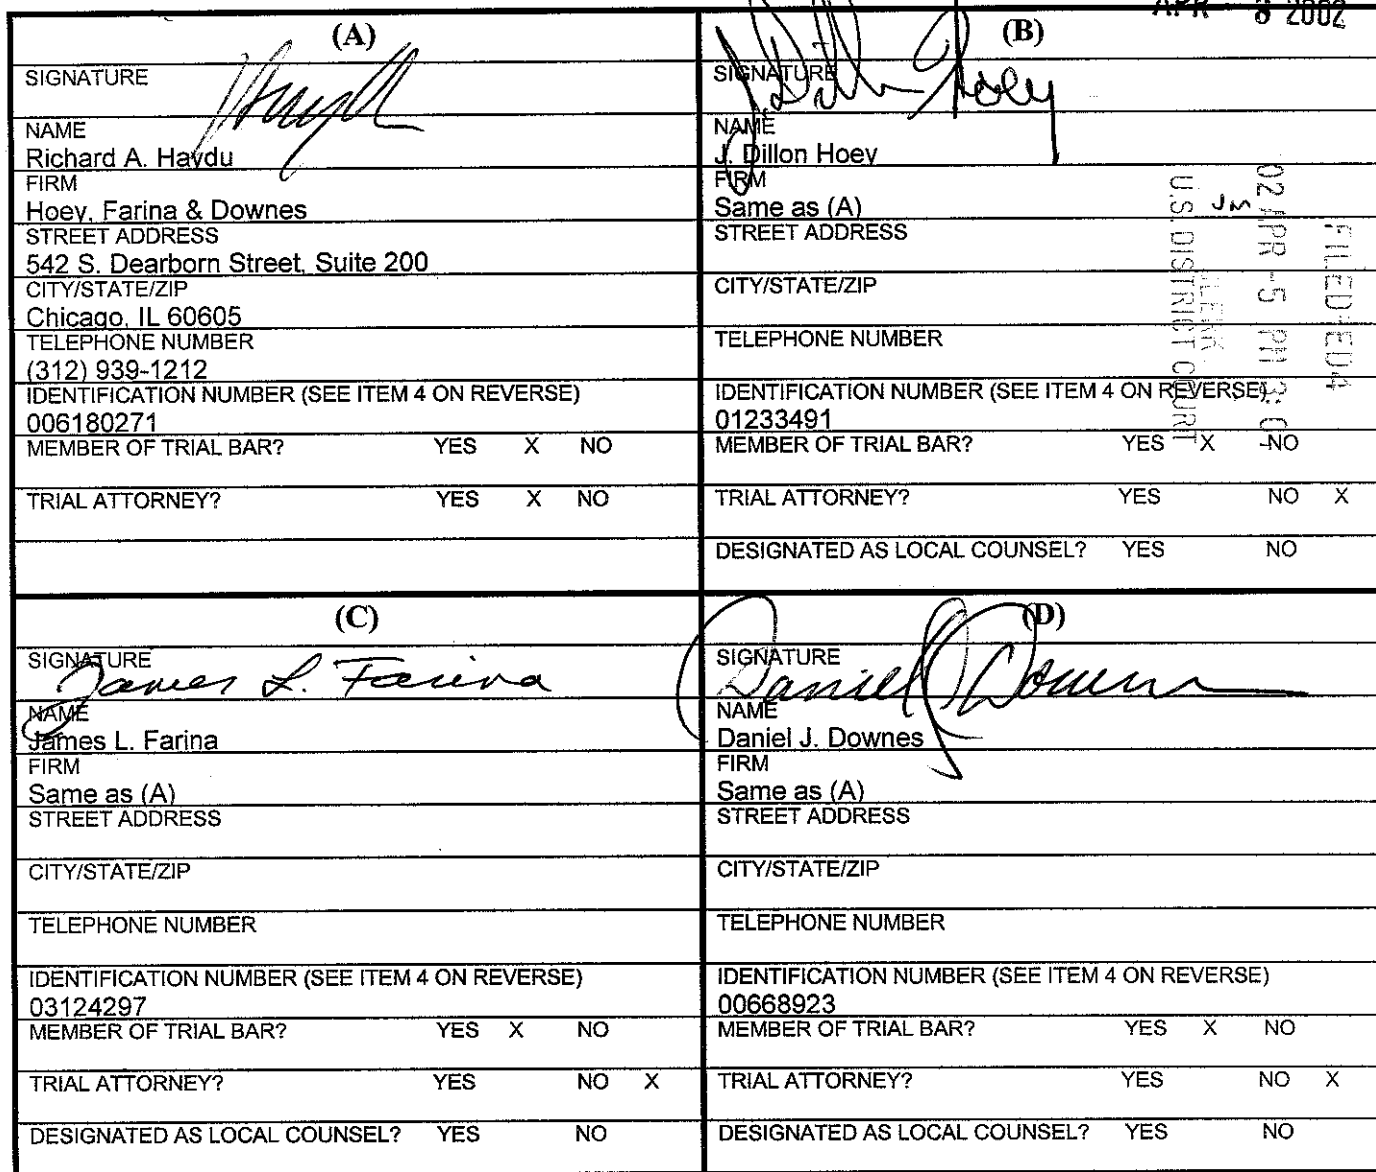 APR - 8 2002
(A)
SIGNATURE
NAME
Richard A. Haydu
FIRM
Hoey, Farina & Downes
STREET ADDRESS
542 S. Dearborn Street, Suite 200
CITY/STATE/ZIP
Chicago, IL 60605
TELEPHONE NUMBER
(312) 939-1212
IDENTIFICATION NUMBER (SEE ITEM 4 ON REVERSE)
006180271
MEMBER OF TRIAL BAR? YES X NO
TRIAL ATTORNEY? YES X NO
(B)
SIGNATURE
J. Dillon Hoey
NAME
J. Dillon Hoey
FIRM
Same as (A)
STREET ADDRESS
CITY/STATE/ZIP
TELEPHONE NUMBER
IDENTIFICATION NUMBER (SEE ITEM 4 ON REVERSE)
01233491
MEMBER OF TRIAL BAR? YES X NO
TRIAL ATTORNEY? YES NO X
DESIGNATED AS LOCAL COUNSEL? YES NO
FILED-ED4
02 APR -5 PM 3:
JM
CLERK
U.S. DISTRICT COURT
(C)
SIGNATURE
James L. Farina
NAME
James L. Farina
FIRM
Same as (A)
STREET ADDRESS
CITY/STATE/ZIP
TELEPHONE NUMBER
IDENTIFICATION NUMBER (SEE ITEM 4 ON REVERSE)
03124297
MEMBER OF TRIAL BAR? YES X NO
TRIAL ATTORNEY? YES NO X
DESIGNATED AS LOCAL COUNSEL? YES NO
(D)
SIGNATURE
Daniel J Downes
NAME
Daniel J. Downes
FIRM
Same as (A)
STREET ADDRESS
CITY/STATE/ZIP
TELEPHONE NUMBER
IDENTIFICATION NUMBER (SEE ITEM 4 ON REVERSE)
00668923
MEMBER OF TRIAL BAR? YES X NO
TRIAL ATTORNEY? YES NO X
DESIGNATED AS LOCAL COUNSEL? YES NO